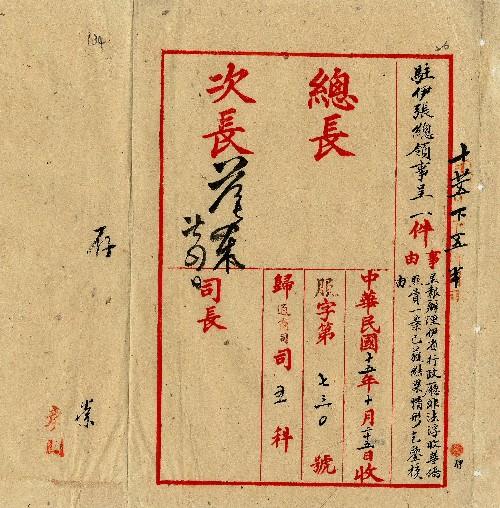 十廿五下五
駐伊張總領事呈一件
事由
呈報辦理伊省行政廳非法浮收華僑
照費一案已獲結果情形乞鑒核
由
總長
次長
司長
中華民國十五年十月廿五日收
服字第七三〇號
歸通商司司五科
存
194